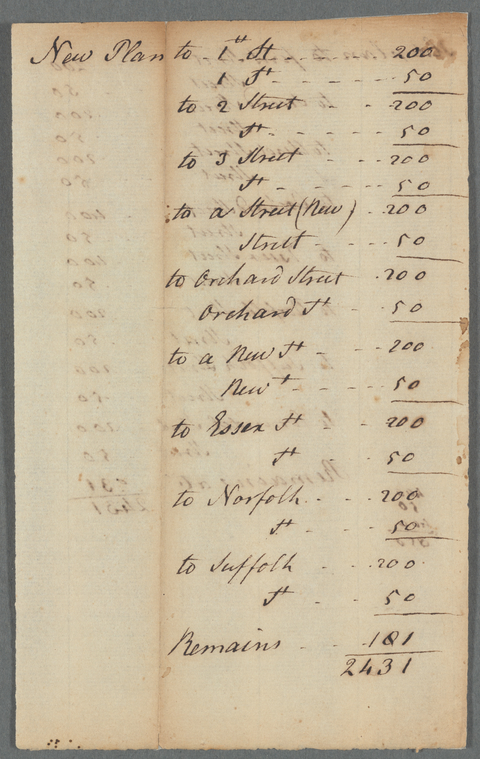 New Plan to 1st St - - - - 200
1 St - - - - - 50
to 2 Street - - 200
St - - - - 50
to 3 Street - - 200
St - - - - - 50
to a Street (New) - 200
Street - - - 50
to Orchard Street 200
Orchard St - - 50
to a New St - - - 200
New St - - - - 50
to Essex St - - 200
St - - - - 50
to Norfolk - - - 200
St - - - 50
to Suffolk - - - 200
St - - - 50
Remains - - - 181
2431